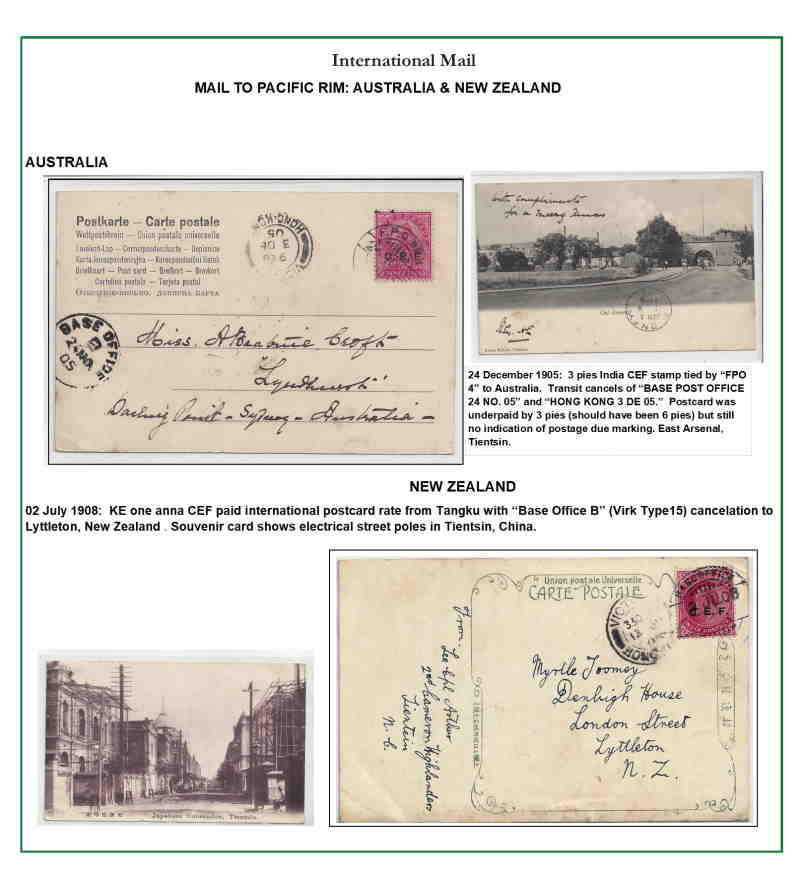 International Mail
MAIL TO PACIFIC RIM: AUSTRALIA & NEW ZEALAND
AUSTRALIA
Postkarte — Carte postale
Weltpostverein — Union postale universelle
Levelező-Lap — Correspondenzkarte — Dopisnice
Karta korespondencyjna — Korespondenční lístek
Briefkaart — Post card — Brefkort — Brevkort
Cartolina postale — Tarjeta postal
HONG-KONG
3 DE
05
BASE OFFICE
B
24 NO
05
Miss. A Beatrice Croft
"Lyndhurst"
Darling Point - Sydney - Australia -
With compliments
for a Merry Xmas
24 December 1905: 3 pies India CEF stamp tied by “FPO
4” to Australia. Transit cancels of “BASE POST OFFICE
24 NO. 05” and “HONG KONG 3 DE 05.” Postcard was
underpaid by 3 pies (should have been 6 pies) but still
no indication of postage due marking. East Arsenal,
Tientsin.
NEW ZEALAND
02 July 1908: KE one anna CEF paid international postcard rate from Tangku with “Base Office B” (Virk Type15) cancelation to
Lyttleton, New Zealand . Souvenir card shows electrical street poles in Tientsin, China.
Japanese Concession, Tientsin.
Union postale Universelle
CARTE POSTALE
C.E.F.
From
Lce Cpl Arthur
2nd Cameron Highlanders
Tientsin
N. C.
Myrtle Toomey
Denbigh House
London Street
Lyttleton
N. Z.